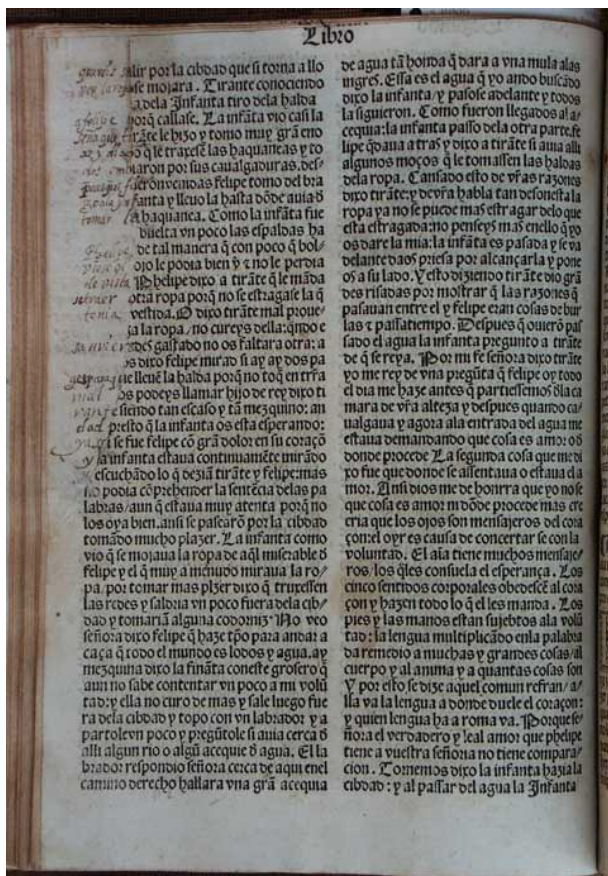 Libro
salir por la cibdad que si torna a llo
se mojara. Tirante conociendo
dela Infanta tiro dela halda
porq̃ callase. La infãta vio casi la
tirãte le hizo y tomo muy grã eno
q̃ le traxesẽ las haquaneas y to
por sus caualgaduras. des-
fuerõn venidas felipe tomo del bra
fanta y lleuo la hasta dõde auia ð
haquanea. Como la infãta fue
buelta vn poco las espaldas ha
de tal manera q̃ con poco q̃ bol-
ojo le podia bien ỹ ⁊ no le perdia
Phelipe dixo a tirãte q̃ le mãda
otra ropa porq̃ no se estragase la q̃
vestida. O dixo tirãte mal proue-
ja la ropa/no cureys della: qñdo e
gastado no os faltara otra: a
dixo felipe mirad si ay ay dos pa
lleuẽ la halda porq̃ no toq̃ en trr̃a
os podeys llamar hijo de rey dixo ti
siendo tan escaso y tã mezquino: an
presto q̃ la infanta os esta esperando:
se fue felipe cõ grã dolor en su coraçõ
y la infanta estaua continuamẽte mirãdo
escuchãdo lo q̃ deziã tirãte y felipe: mas
no podia cõprehender la sentẽcia delas pa
labras/aun q̃ estaua muy atenta porq̃ no
los oya bien. ansi se pasearõ por la cibdad
tomãdo mucho plazer. La infanta como
vio q̃ se mojaua la ropa de aq̃l miserable ð
felipe y el q̃ muy a menudo miraua la ro/
pa/por tomar mas plzer dixo q̃ truxessen
las redes y saldria vn poco fuera dela cib/
dad y tomariã alguna codorniz. No veo
señora dixo felipe q̃ haze tp̃o para andar a
caça q̃ todo el mundo es lodos y agua. ay
mezquina dixo la finãta coneste grosero q̃
aun no sabe contentar vn poco a mi volũ
tad: y ella no curo de mas y sale luego fue
ra dela cibdad y topo con vn labrador y a
partolevn poco y pregũtole si auia cerca ð
alli algun rio o algũ acequie ð agua. El la
brador respondio señora cerca de aqui enel
camino derecho hallara vna grã acequia
de agua tã honda q̃ dara a vna mula alas
ingres. Essa es el agua q̃ yo ando buscãdo
dixo la infanta/y pasose adelante y todos
la siguieron. Como fueron llegados al a/
cequia: la infanta passo dela otra parte. fe
lipe q̃daua atras y dixo a tirãte si auia alli
algunos moços q̃ le tomassen las haldas
dela ropa. Cansado esto de vr̃as razones
dixo tirãte: y devr̃a habla tan desonesta la
ropa ya no se puede mas estragar delo que
esta estragada: no penseys mas enello q̃ yo
os dare la mia: la infãta es pasada y se va
delante daos priesa por alcançarla y pone
os a su lado. Y esto diziendo tirãte dio grã
des risadas por mostrar q̃ las razones q̃
pasauan entre el y felipe eran cosas de bur
las ⁊ passatiempo. Despues q̃ ouierõ pas
sado el agua la infanta pregunto a tirãte
de q̃ se reya. Por mi fe señora dixo tirãte
yo me rey de vna pregũta q̃ felipe oy todo
el dia me haze antes q̃ partiessemos ðla ca
mara de vr̃a alteza y despues quando ca/
ualgaua y agora ala entrada del agua me
estaua demandando que cosa es amor o ð
donde procede La segunda cosa que me di
xo fue que donde se assentaua o estaua el a
mor. Ansi dios me de honrra que yo no se
que cosa es amor ni dõde procede mas cre
eria que los ojos son mensajeros del cora
çon: el oyr es causa de concertar se con la
voluntad. El aĩa tiene muchos mensaje/
ros/los q̃les consuela el esperança. Los
cinco sentidos corporales obedescẽ al cora
çon y hazen todo lo q̃ el les manda. Los
pies y las manos estan sujebtos ala volũ
tad: la lengua multiplicãdo enla palabra
da remedio a muchas y grandes cosas/al
cuerpo y al anima y a quantas cosas son
Y por esto se dize aquel comun refran/a/
lla va la lengua a donde duele el coraçon:
y quien lengua ha a roma va. Porque se/
ñora el verdadero y leal amor que phelipe
tiene a vuestra señoria no tiene compara/
cion. Tornemos dixo la infanta hazia la
cibdad: y al passar del agua la Infanta